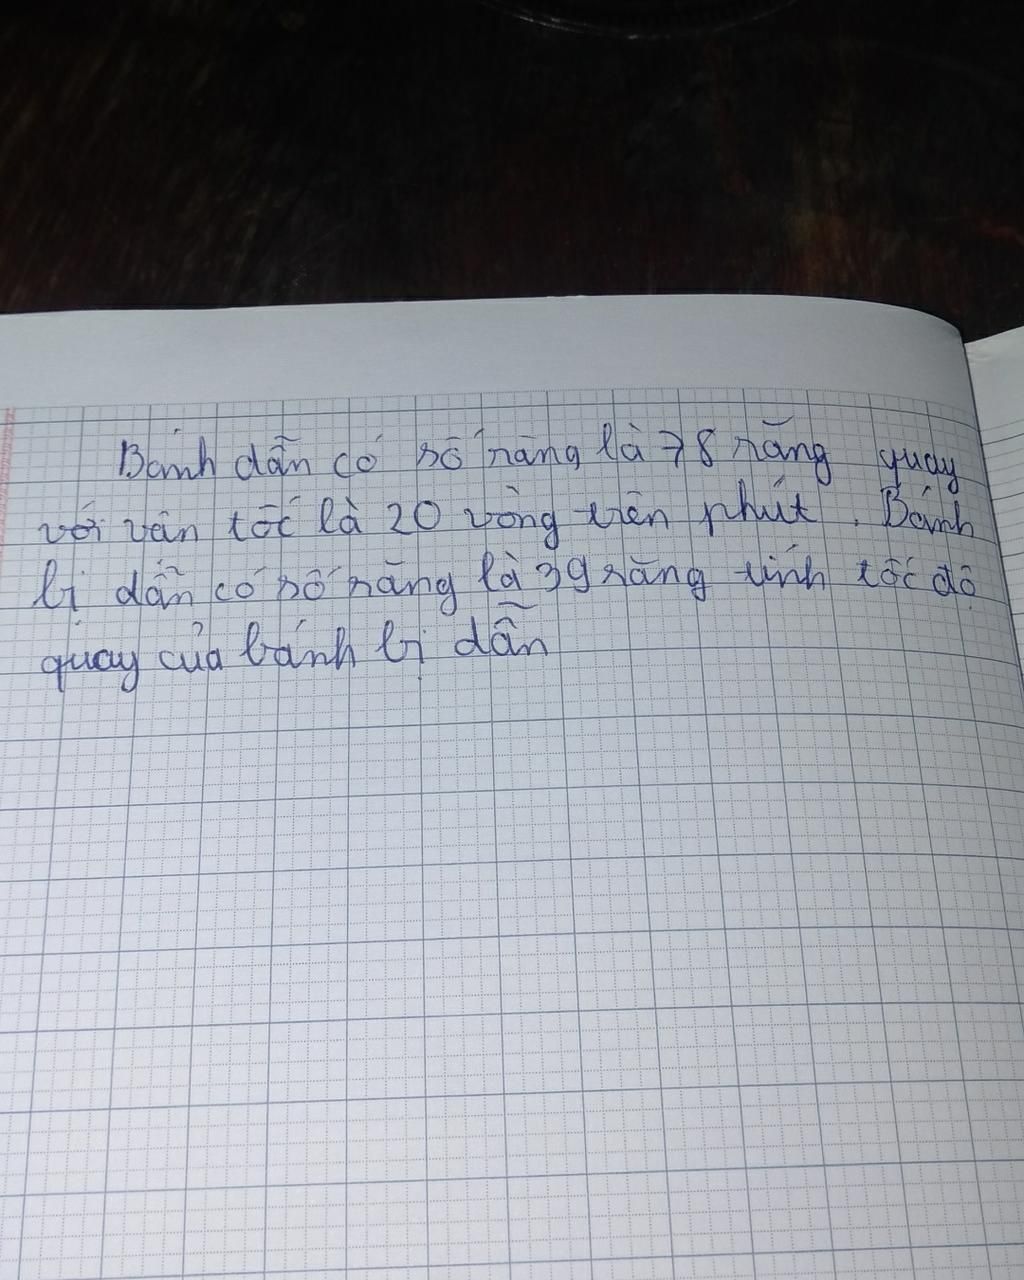 Bánh dẫn có số răng là 78 răng quay
với vân tốc là 20 vòng trên phút. Bánh
bị dẫn có số răng là 39 răng tính tốc độ
quay của bánh bị dẫn